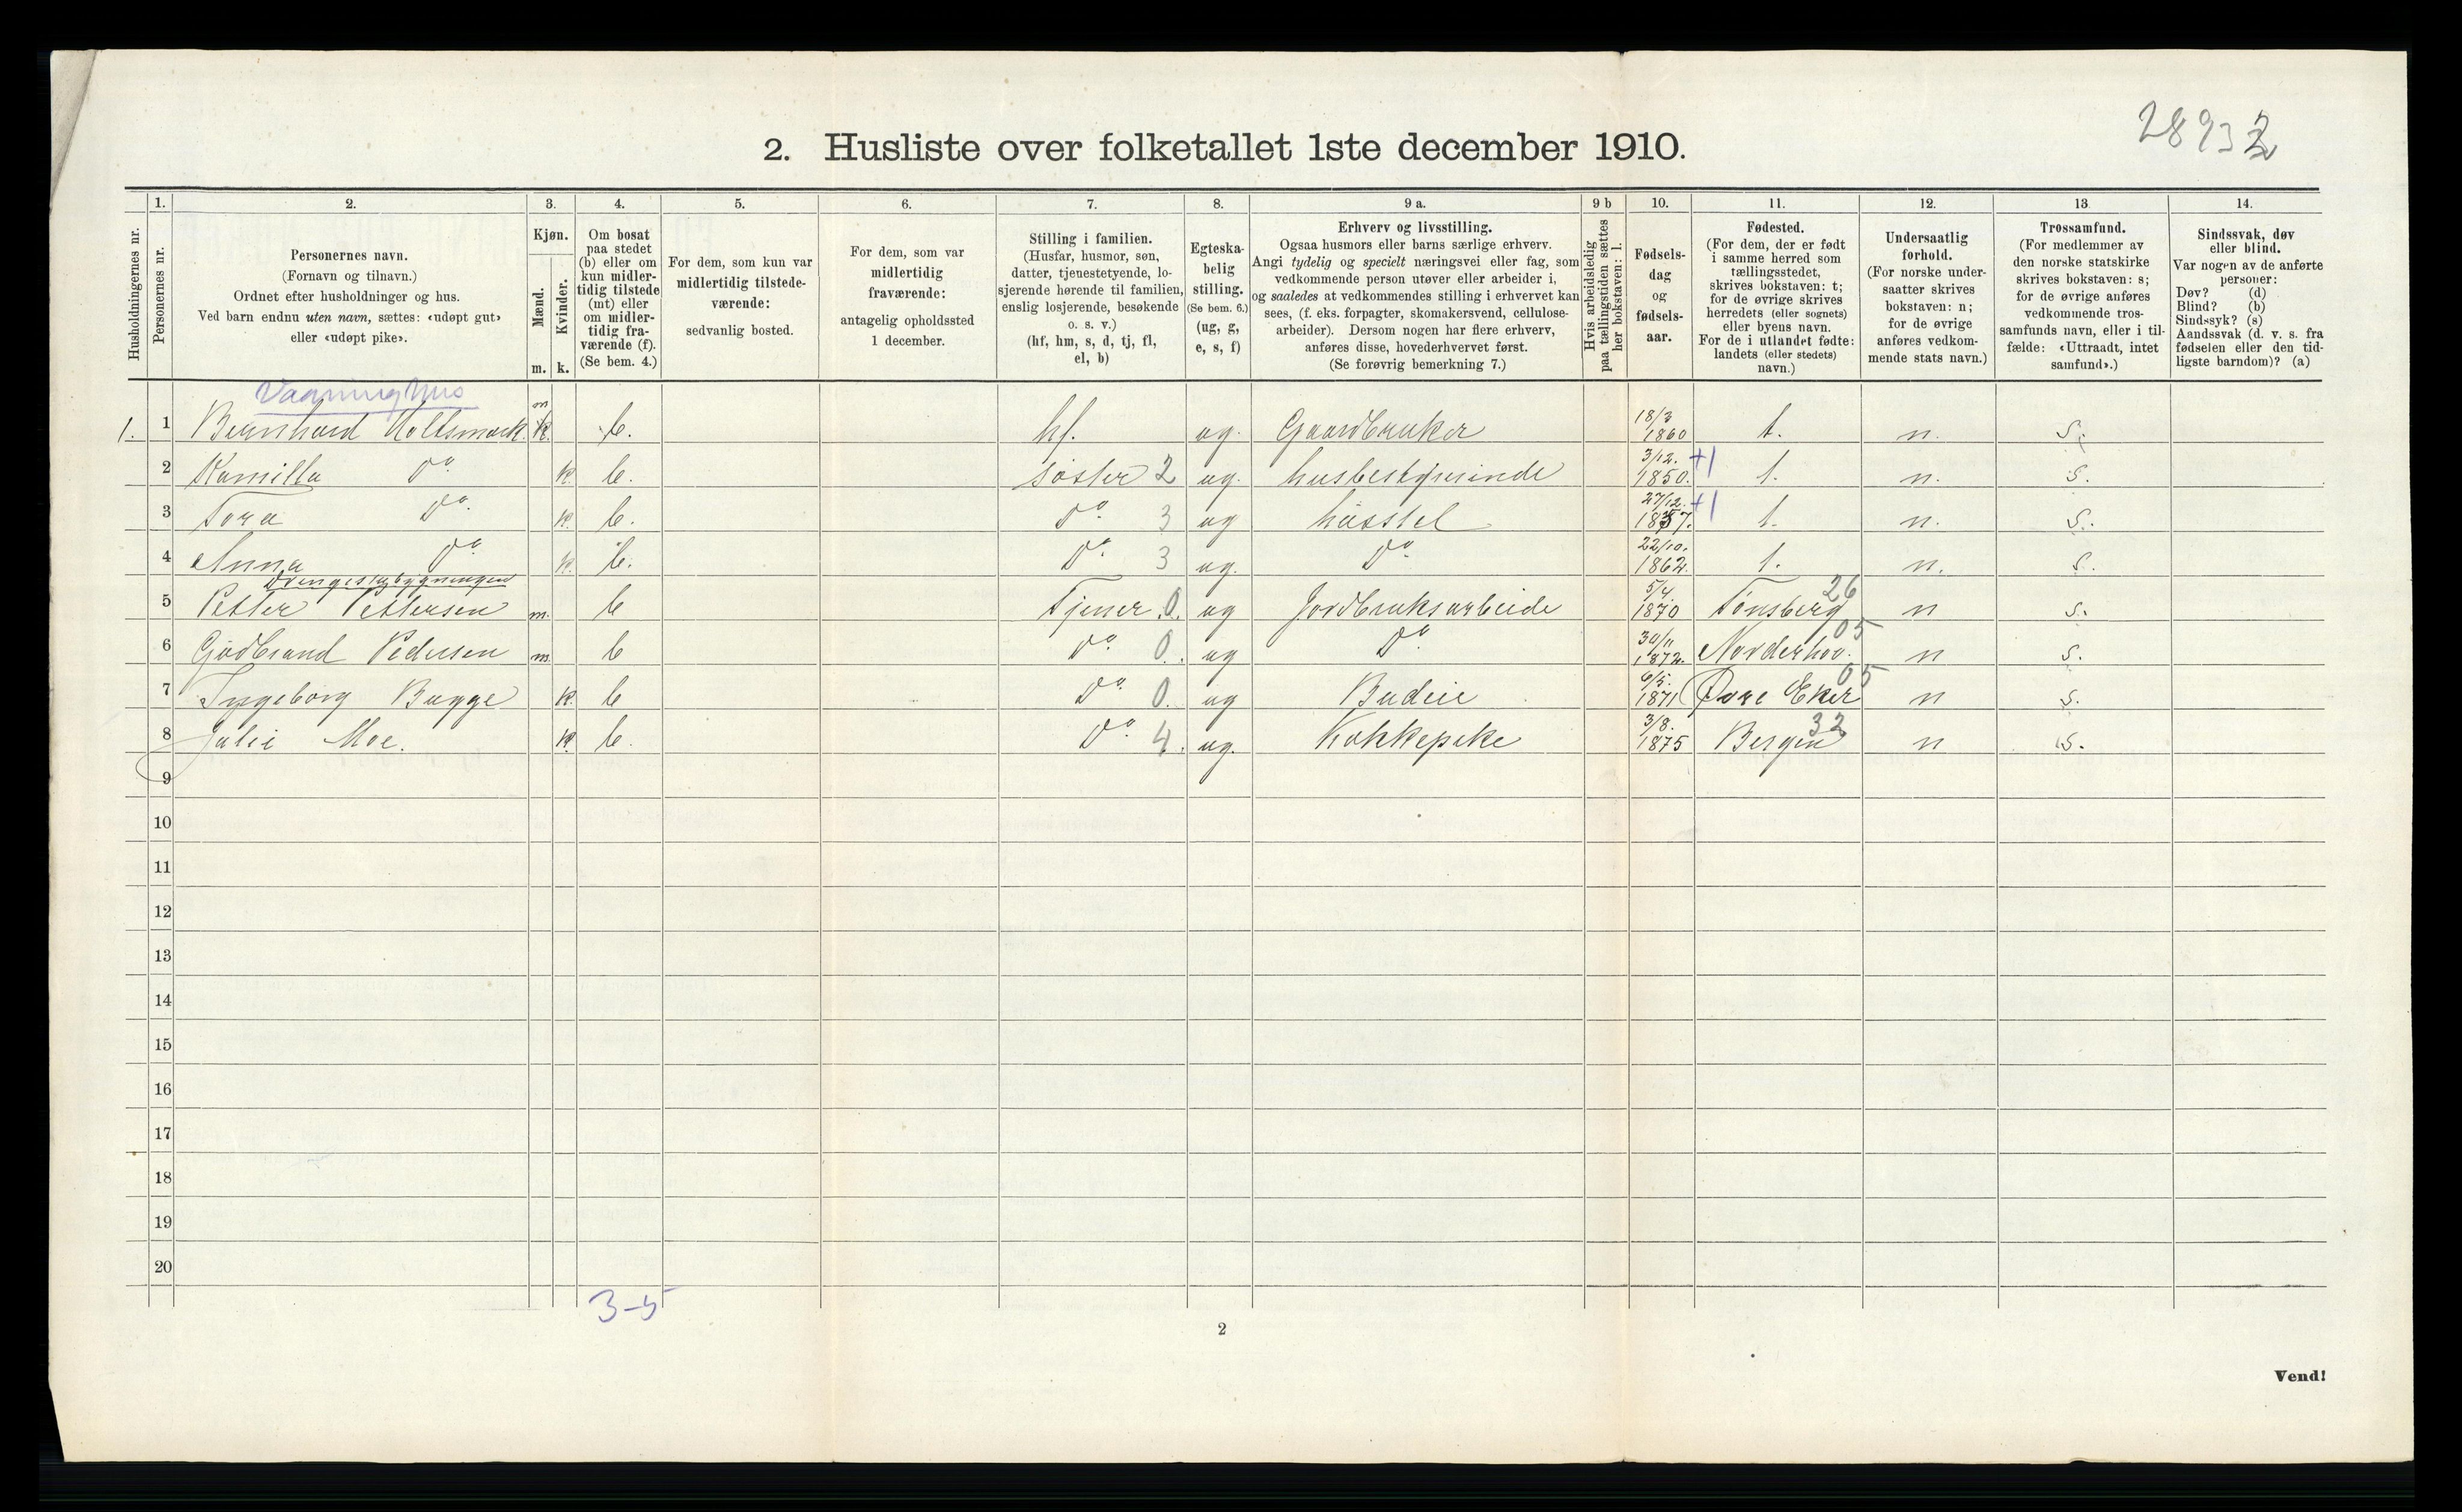 28932
2. Husliste over folketallet 1ste december 1910.
Husholdningernes nr.
1. Personernes nr.
2. Personernes navn. (Fornavn og tilnavn.) Ordnet efter husholdninger og hus. Ved barn endnu uten navn, sættes: «udøpt gut» eller «udøpt pike».
3. Kjøn. Mænd. m. Kvinder. k.
4. Om bosat paa stedet (b) eller om kun midlertidig tilstede (mt) eller om midlertidig fraværende (f). (Se bem. 4.)
5. For dem, som kun var midlertidig tilstedeværende: sedvanlig bosted.
6. For dem, som var midlertidig fraværende: antagelig opholdssted 1 december.
7. Stilling i familien. (Husfar, husmor, søn, datter, tjenestetyende, losjerende hørende til familien, enslig losjerende, besøkende o. s. v.) (hf, hm, s, d, tj, fl, el, b)
8. Egteskabelig stilling. (Se bem. 6.) (ug, g, e, s, f)
9 a. Erhverv og livsstilling. Ogsaa husmors eller barns særlige erhverv. Angi tydelig og specielt næringsvei eller fag, som vedkommende person utøver eller arbeider i, og saaledes at vedkommendes stilling i erhvervet kan sees, (f. eks. forpagter, skomakersvend, cellulosearbeider). Dersom nogen har flere erhverv, anføres disse, hovederhvervet først. (Se forøvrig bemerkning 7.)
9 b Hvis arbeidsledig paa tællingstiden sættes her bokstaven: l.
10. Fødselsdag og fødselsaar.
11. Fødested. (For dem, der er født i samme herred som tællingsstedet, skrives bokstaven: t; for de øvrige skrives herredets (eller sognets) eller byens navn. For de i utlandet fødte: landets (eller stedets) navn.)
12. Undersaatlig forhold. (For norske undersaatter skrives bokstaven: n; for de øvrige anføres vedkommende stats navn.)
13. Trossamfund. (For medlemmer av den norske statskirke skrives bokstaven: s; for de øvrige anføres vedkommende trossamfunds navn, eller i tilfælde: «Uttraadt, intet samfund».)
14. Sindssvak, døv eller blind. Var nogen av de anførte personer: Døv? (d) Blind? (b) Sindssyk? (s) Aandssvak (d. v. s. fra fødselen eller den tidligste barndom)? (a)
Vaaninghus
1. 1 Bernhard Holtsmark. m k. b. hf. ug. Gaardbruker 18/3 1860 t. n. s.
2 Kamilla Do k b. søster 2 ug. husbestyrerinde 3/12. 1850. +1 t. n. s.
3 Tora Do. k. b. Do 3 ug husstel 27/12. 1857. +1 t. n. s.
4 Anna Do k. b. Do 3 ug. Do 22/10. 1862. t. n. s.
Drengestubygningen
5 Petter Pettersen m. b Tjener 0. ug Jordbruksarbeide 5/4. 1870 Tønsberg 26 n s.
6 Gudbrand Pedersen m b Do 0. ug Do 30/11 1872. Norderhov. 05 n s.
7 Ingeborg Bugge k. b Do 0. ug Budeie 6/5. 1871 Øvre Eker 05 n s.
8 Julie Moe. k. b. Do 4. ug. Kokkepike 3/8. 1875 Bergen 32 n s.
9
10
11
12
13
14
15
16
17
18
19
20
3-5
2
Vend!